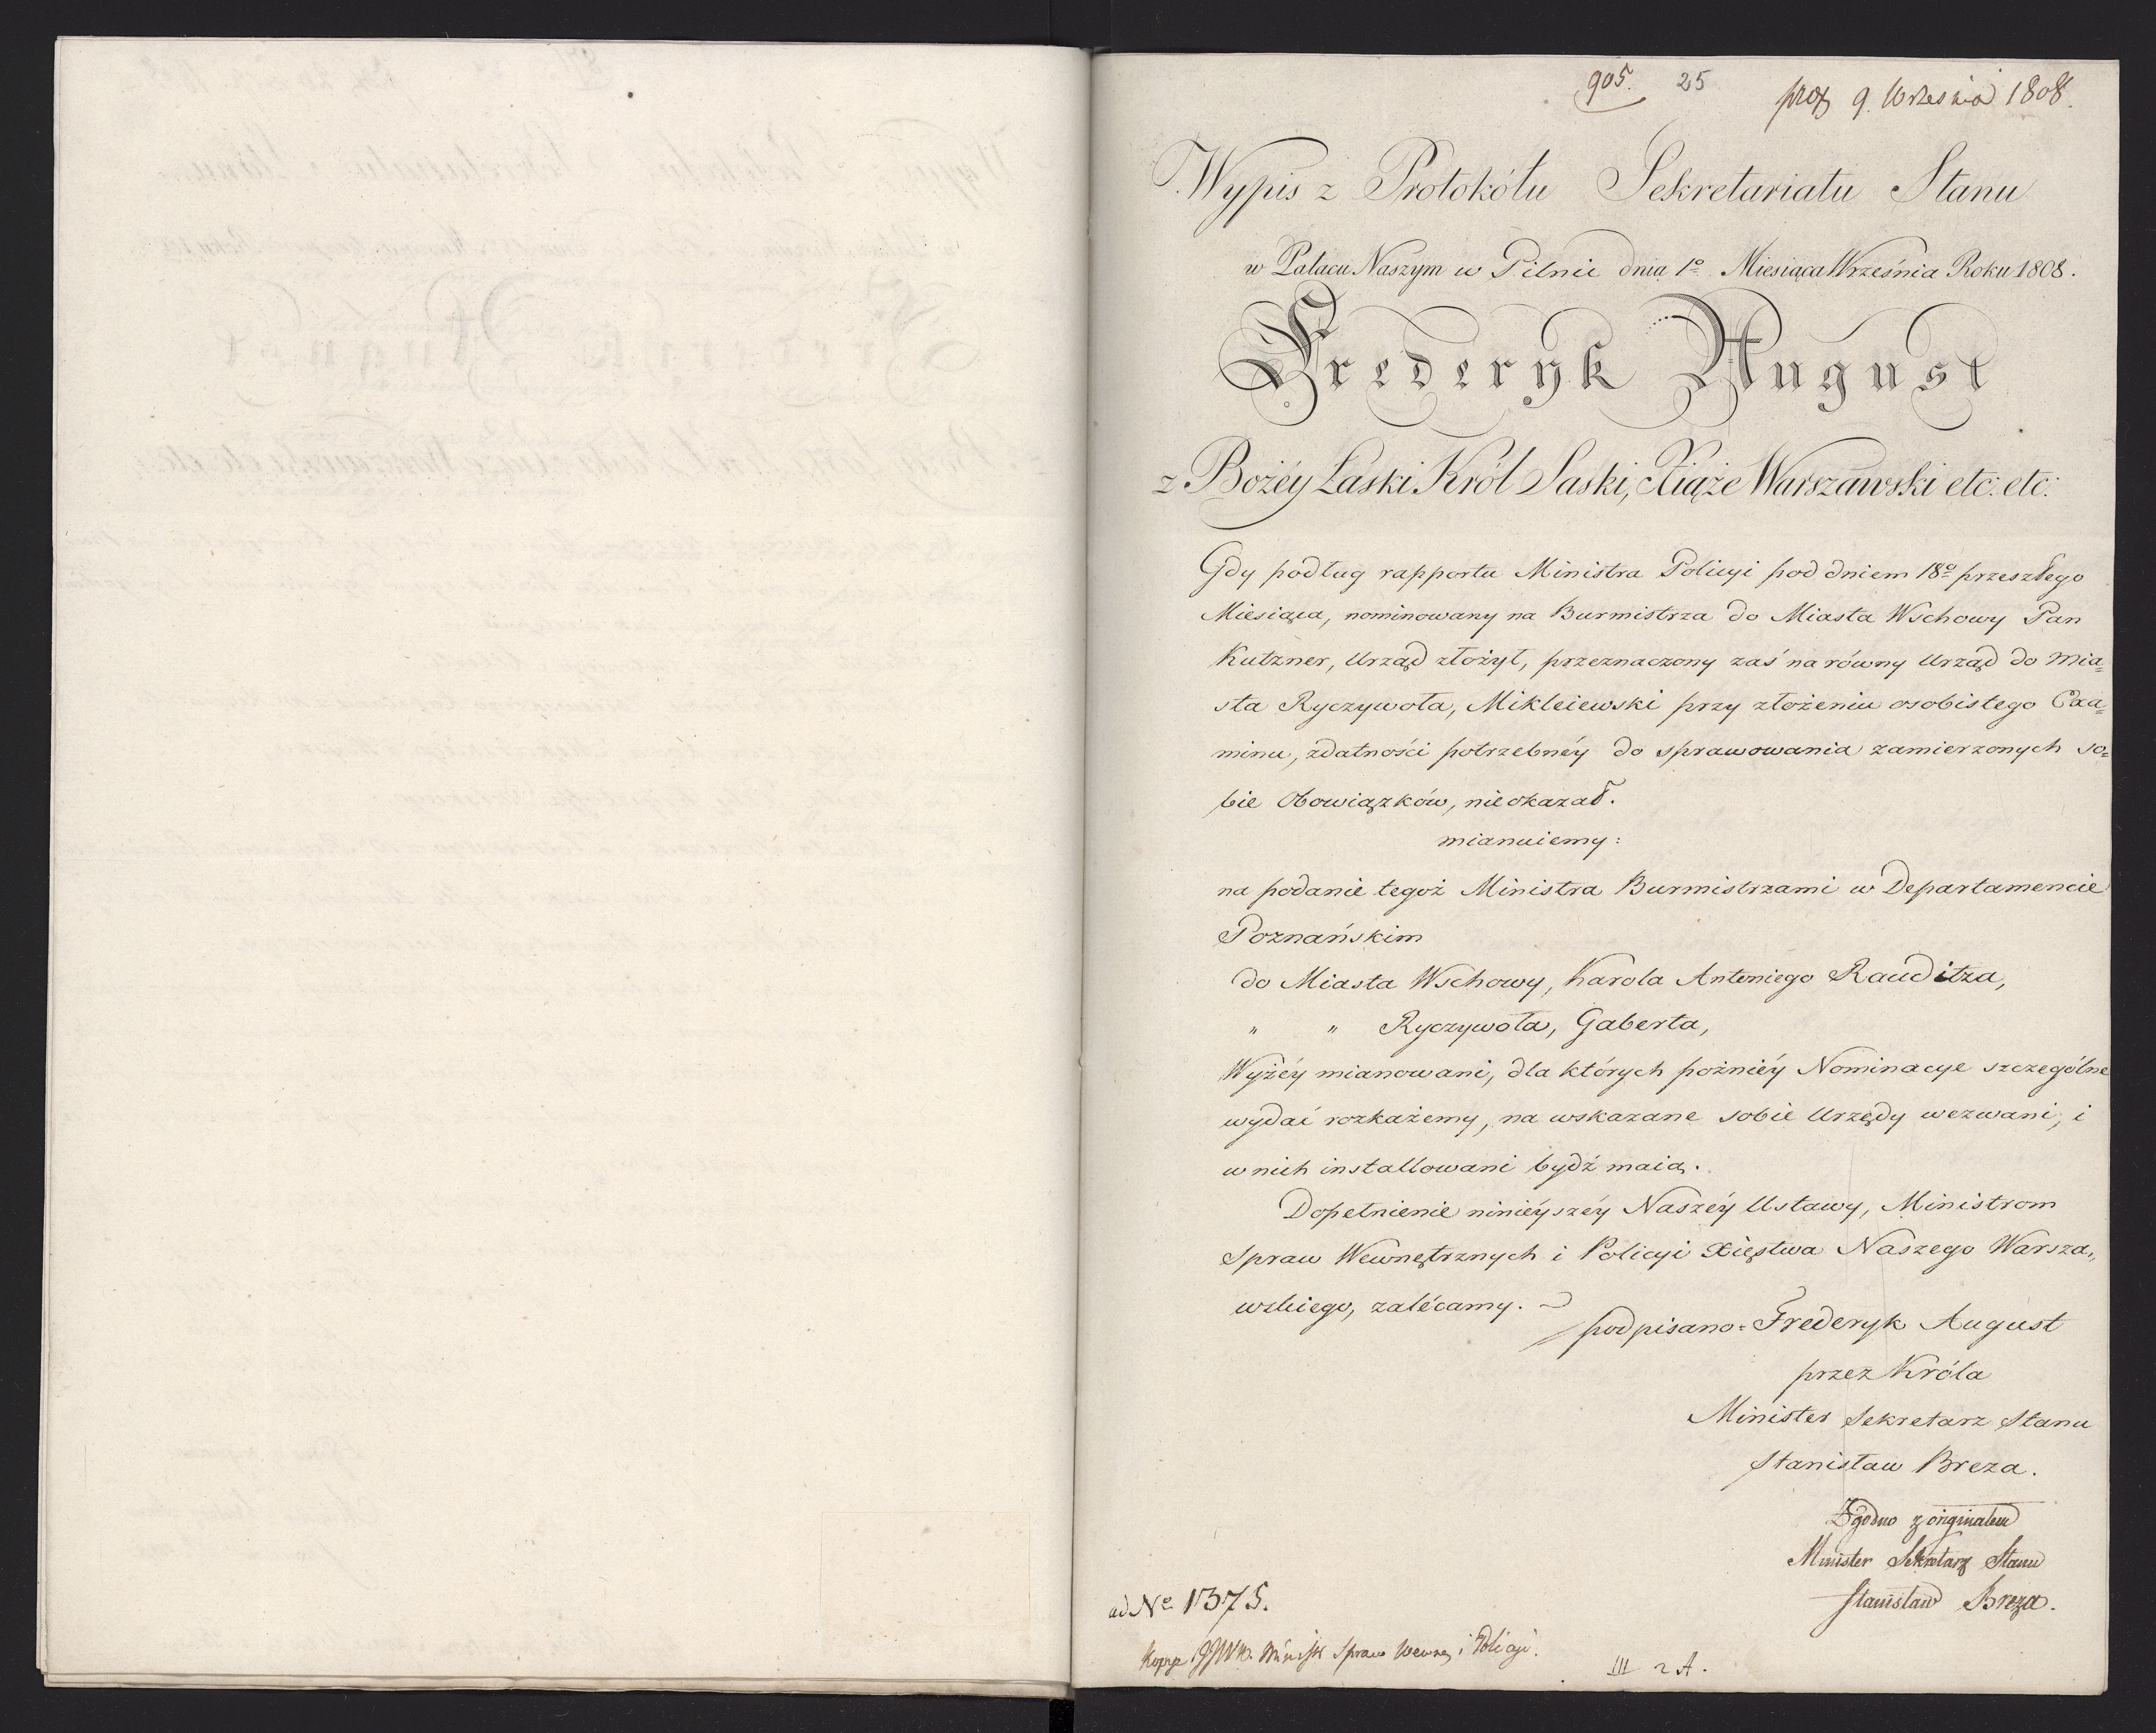 905. 25 prox 9. Września 1808.
Wypis z Protokółu Sekretariatu Stanu
w Pałacu Naszym w Pilnic dnia 1º Miesiąca Września Roku 1808.
Frederyk August
z Bożéy Łaski Król Saski, Xiąże Warszawski etc: etc:
Gdy podług rapportu Ministra Policyi pod dniem 18º przeszłego
Miesiąca, nominowany na Burmistrza do Miasta Wschowy Pan
Kutzner, Urząd złożył, przeznaczony zaś na równy Urząd do Mia=
sta Ryczywoła, Mikleiewski przy złożeniu osobistego Exa=
minu, zdatności potrzebnéy do sprawowania zamierzonych so=
bie Obowiązków, nieokazał.
mianuiemy:
na podanie tegoż Ministra Burmistrzami w Departamencie
Poznańskim
do Miasta Wschowy, Karola Antoniego Rauditza,
" " Ryczywoła, Gaberta,
Wyżéy mianowani, dla których pożniéy Nominacye szczególne
wydać rozkażemy, na wskazane sobie Urzędy wezwani, i
w nich installowani bydź maią.
Dopełnienie ninièyszéy Naszéy Ustawy, Ministrom
Spraw Wewnętrznych i Policyi Xięstwa Naszego Warsza„
wskiego, zalécamy.
podpisano = Frederyk August
przez Króla
Minister Sekretarz Stanu
Stanisław Breza.
Zgodno z originałem
Minister Sekretarz Stanu
Stanisław Breza.
ad Nº 1375.
Kopije Ministr Spraw Wewnę i Policyi.
III 2 A.